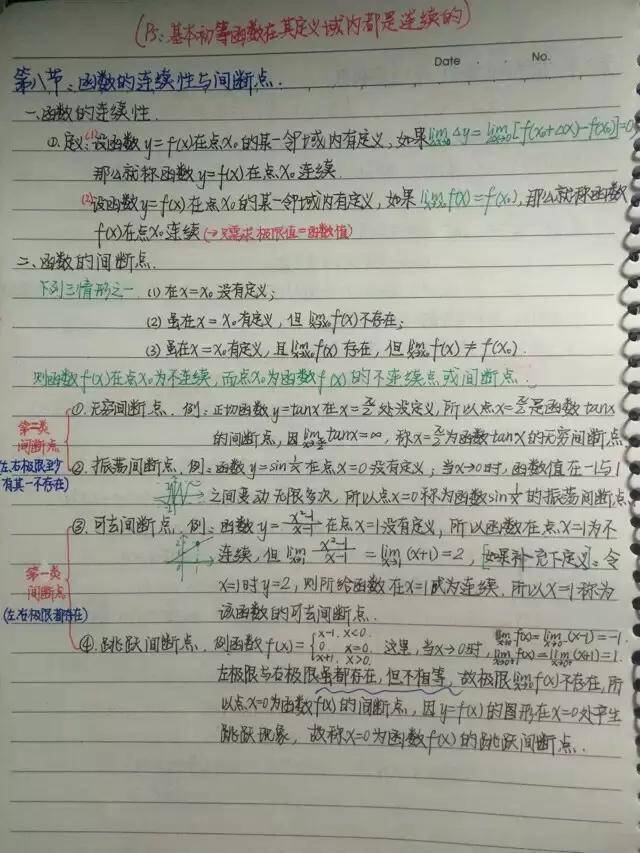 (Ps:基本初等函数在其定义域内都是连续的)
Date . . No.
第八节:函数的连续性与间断点.
一、函数的连续性.
①.定义:(1)设函数y=f(x)在点x₀的某一邻域内有定义,如果lim Δx→0 Δy=lim Δx→0 [f(x₀+Δx)-f(x₀)]=0
那么就称函数y=f(x)在点x₀连续.
(2)设函数y=f(x)在点x₀的某一邻域内有定义,如果lim x→x₀ f(x)=f(x₀),那么就称函数
f(x)在点x₀连续(→只需求极限值=函数值)
二、函数的间断点.
下列三情形之一.(1)在x=x₀没有定义;
(2)虽在x=x₀有定义,但lim x→x₀ f(x)不存在;
(3)虽在x=x₀有定义,且lim x→x₀ f(x)存在,但lim x→x₀ f(x)≠f(x₀).
则函数f(x)在点x₀为不连续,而点x₀为函数f(x)的不连续点或间断点.
第二类
间断点
(左、右极限至少
有其一不存在)
①.无穷间断点.例:正切函数y=tanx在x=π/2处没定义,所以点x=π/2是函数tanx
的间断点,因lim x→π/2 tanx=∞,称x=π/2为函数tanx的无穷间断点
②.振荡间断点.例:函数y=sin1/x在点x=0没有定义;当x→0时,函数值在-1与1
之间变动无限多次,所以点x=0称为函数sin1/x的振荡间断点
第一类
间断点
(左、右极限都存在)
③.可去间断点.例:函数y=x²-1/x-1在点x=1没有定义,所以函数在点x=1为不
连续,但lim x→1 x²-1/x-1=lim x→1 (x+1)=2,[如果补充下定义]:令
x=1时y=2,则所给函数在x=1成为连续.所以x=1称为
该函数的可去间断点.
④.跳跃间断点.例函数f(x)={x-1, x<0. 0 x=0. x+1, x>0. 这里,当x→0时,lim x→0⁻ f(x)=lim x→0⁻ (x-1)=-1. lim x→0⁺ f(x)=lim x→0⁺ (x+1)=1.
左极限与右极限虽都存在,但不相等,故极限lim x→0 f(x)不存在,所
以点x=0为函数f(x)的间断点,因y=f(x)的图形在x=0处产生
跳跃现象,故称x=0为函数f(x)的跳跃间断点.